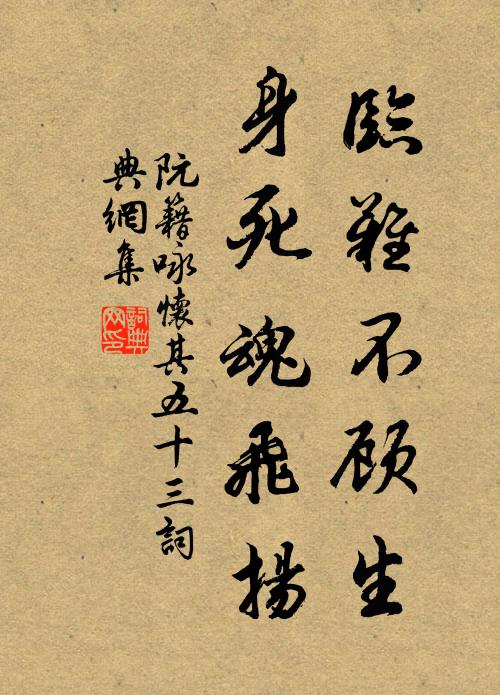 臨難不顾生
身死魂飛揚
阮籍咏懷其五十三詞
典網集
詞典网印